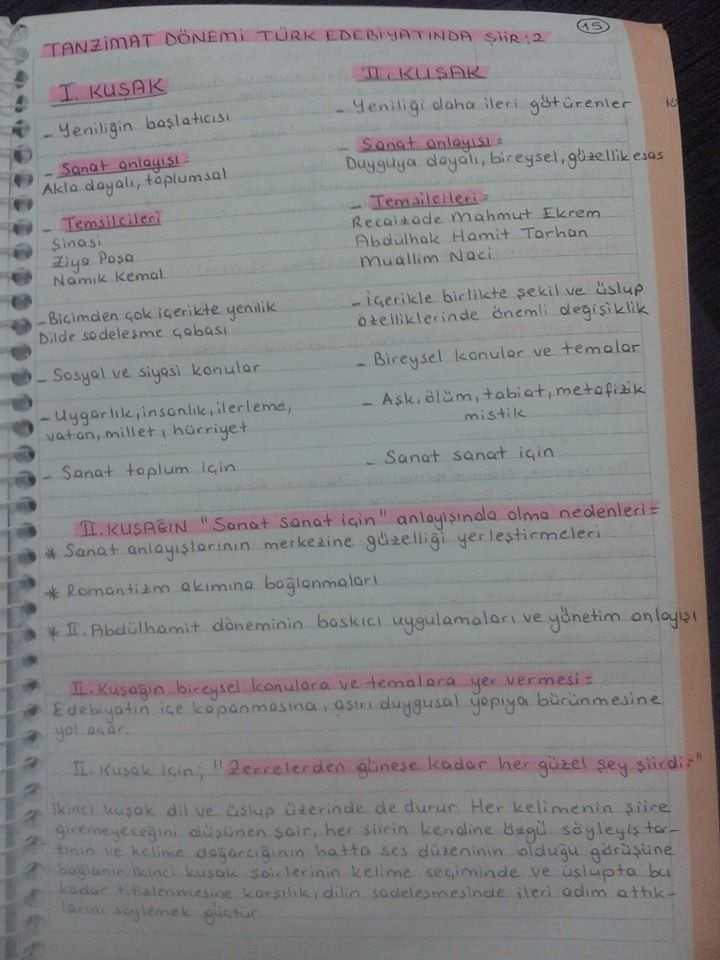 15
TANZİMAT DÖNEMİ TÜRK EDEBİYATINDA ŞİİR : 2
I. KUŞAK
- Yeniliğin başlatıcısı
- Sanat anlayışı =
Akla dayalı, toplumsal
- Temsilcileri
Şinasi
Ziya Paşa
Namık Kemal
- Biçimden çok içerikte yenilik
Dilde sadeleşme çabası
- Sosyal ve siyasi konular
- Uygarlık, insanlık, ilerleme,
vatan, millet, hürriyet
- Sanat toplum için
II. KUŞAK
- Yeniliği daha ileri götürenler
- Sanat anlayışı =
Duyguya dayalı, bireysel, güzellik esas
- Temsilcileri =
Recaizade Mahmut Ekrem
Abdülhak Hamit Tarhan
Muallim Naci
- İçerikle birlikte şekil ve üslup
özelliklerinde önemli değişiklik
- Bireysel konular ve temalar
- Aşk, ölüm, tabiat, metafizik
mistik
- Sanat sanat için
II. KUŞAĞIN "Sanat sanat için" anlayışında olma nedenleri =
* Sanat anlayışlarının merkezine güzelliği yerleştirmeleri
* Romantizm akımına bağlanmaları
* II. Abdülhamit döneminin baskıcı uygulamaları ve yönetim anlayışı
II. Kuşağın bireysel konulara ve temalara yer vermesi =
Edebiyatın içe kapanmasına, aşırı duygusal yapıya bürünmesine
yol açar.
II. Kuşak için; "Zerrelerden güneşe kadar her güzel şey şiirdir."
İkinci kuşak dil ve üslup üzerinde de durur. Her kelimenin şiire
giremeyeceğini düşünen şair, her şiirin kendine özgü söyleyiş tar-
zının ve kelime dağarcığının hatta ses düzeninin olduğu görüşüne
bağlanır. İkinci kuşak şairlerinin kelime seçiminde ve üslupta bu
kadar titizlenmesine karşılık, dilin sadeleşmesinde ileri adım attık-
larını söylemek güçtür.